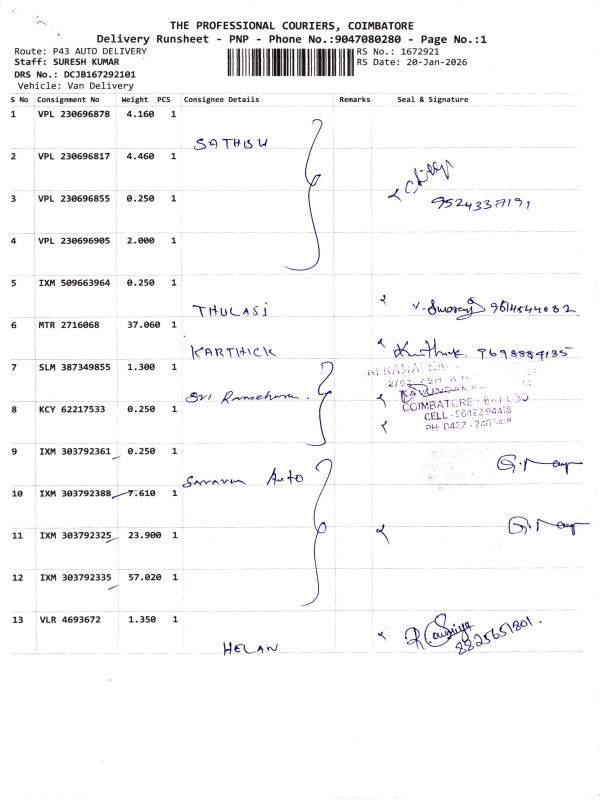 THE PROFESSIONAL COURIERS, COIMBATORE
Delivery Runsheet - PNP - Phone No.:9047080280 - Page No.:1
Route: P43 AUTO DELIVERY
RS No.: 1672921
Staff: SURESH KUMAR
RS Date: 20-Jan-2026
DRS No.: DCJB167292101
Vehicle: Van Delivery
S No Consignment No Weight PCS Consignee Details Remarks Seal & Signature
1 VPL 230696878 4.160 1
SATHISH
2 VPL 230696817 4.460 1
3 VPL 230696855 0.250 1
4 VPL 230696905 2.000 1
5 IXM 509663964 0.250 1
THULASI
6 MTR 2716068 37.060 1
KARTHICK
7 SLM 387349855 1.300 1
Sri
8 KCY 62217533 0.250 1
COIMBATORE
CELL
9 IXM 303792361 0.250 1
Saravana Auto
10 IXM 303792388 7.610 1
11 IXM 303792325 23.900 1
12 IXM 303792335 57.020 1
13 VLR 4693672 1.350 1
HELAN
8825651801